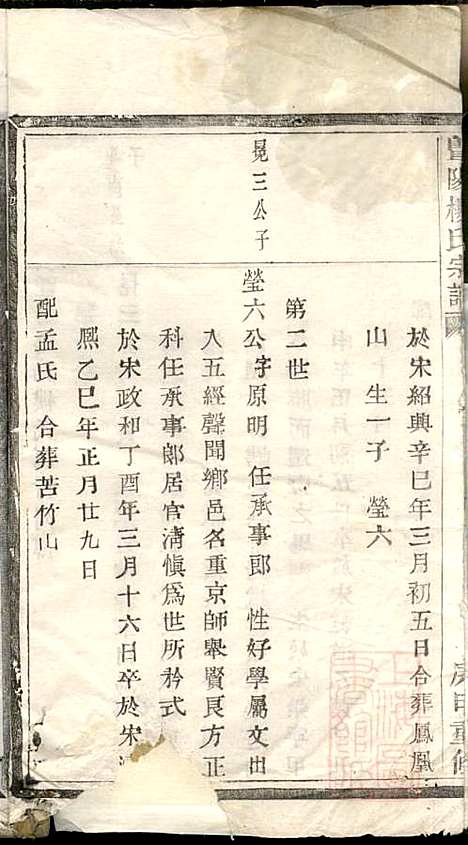 暨陽楊氏宗譜
庚申重修
於宋紹興辛巳年三月初五日合葬鳳凰
山 生一子 瑩六
第二世
晃三公子
瑩六公字原明 任承事郎 性好學屬文出
入五經聲聞鄉邑名重京師舉賢良方正
科任承事郎居官清慎為世所矜式
於宋政和丁酉年三月十六日卒於宋
熙乙巳年正月廿九日
配孟氏 合葬苦竹山